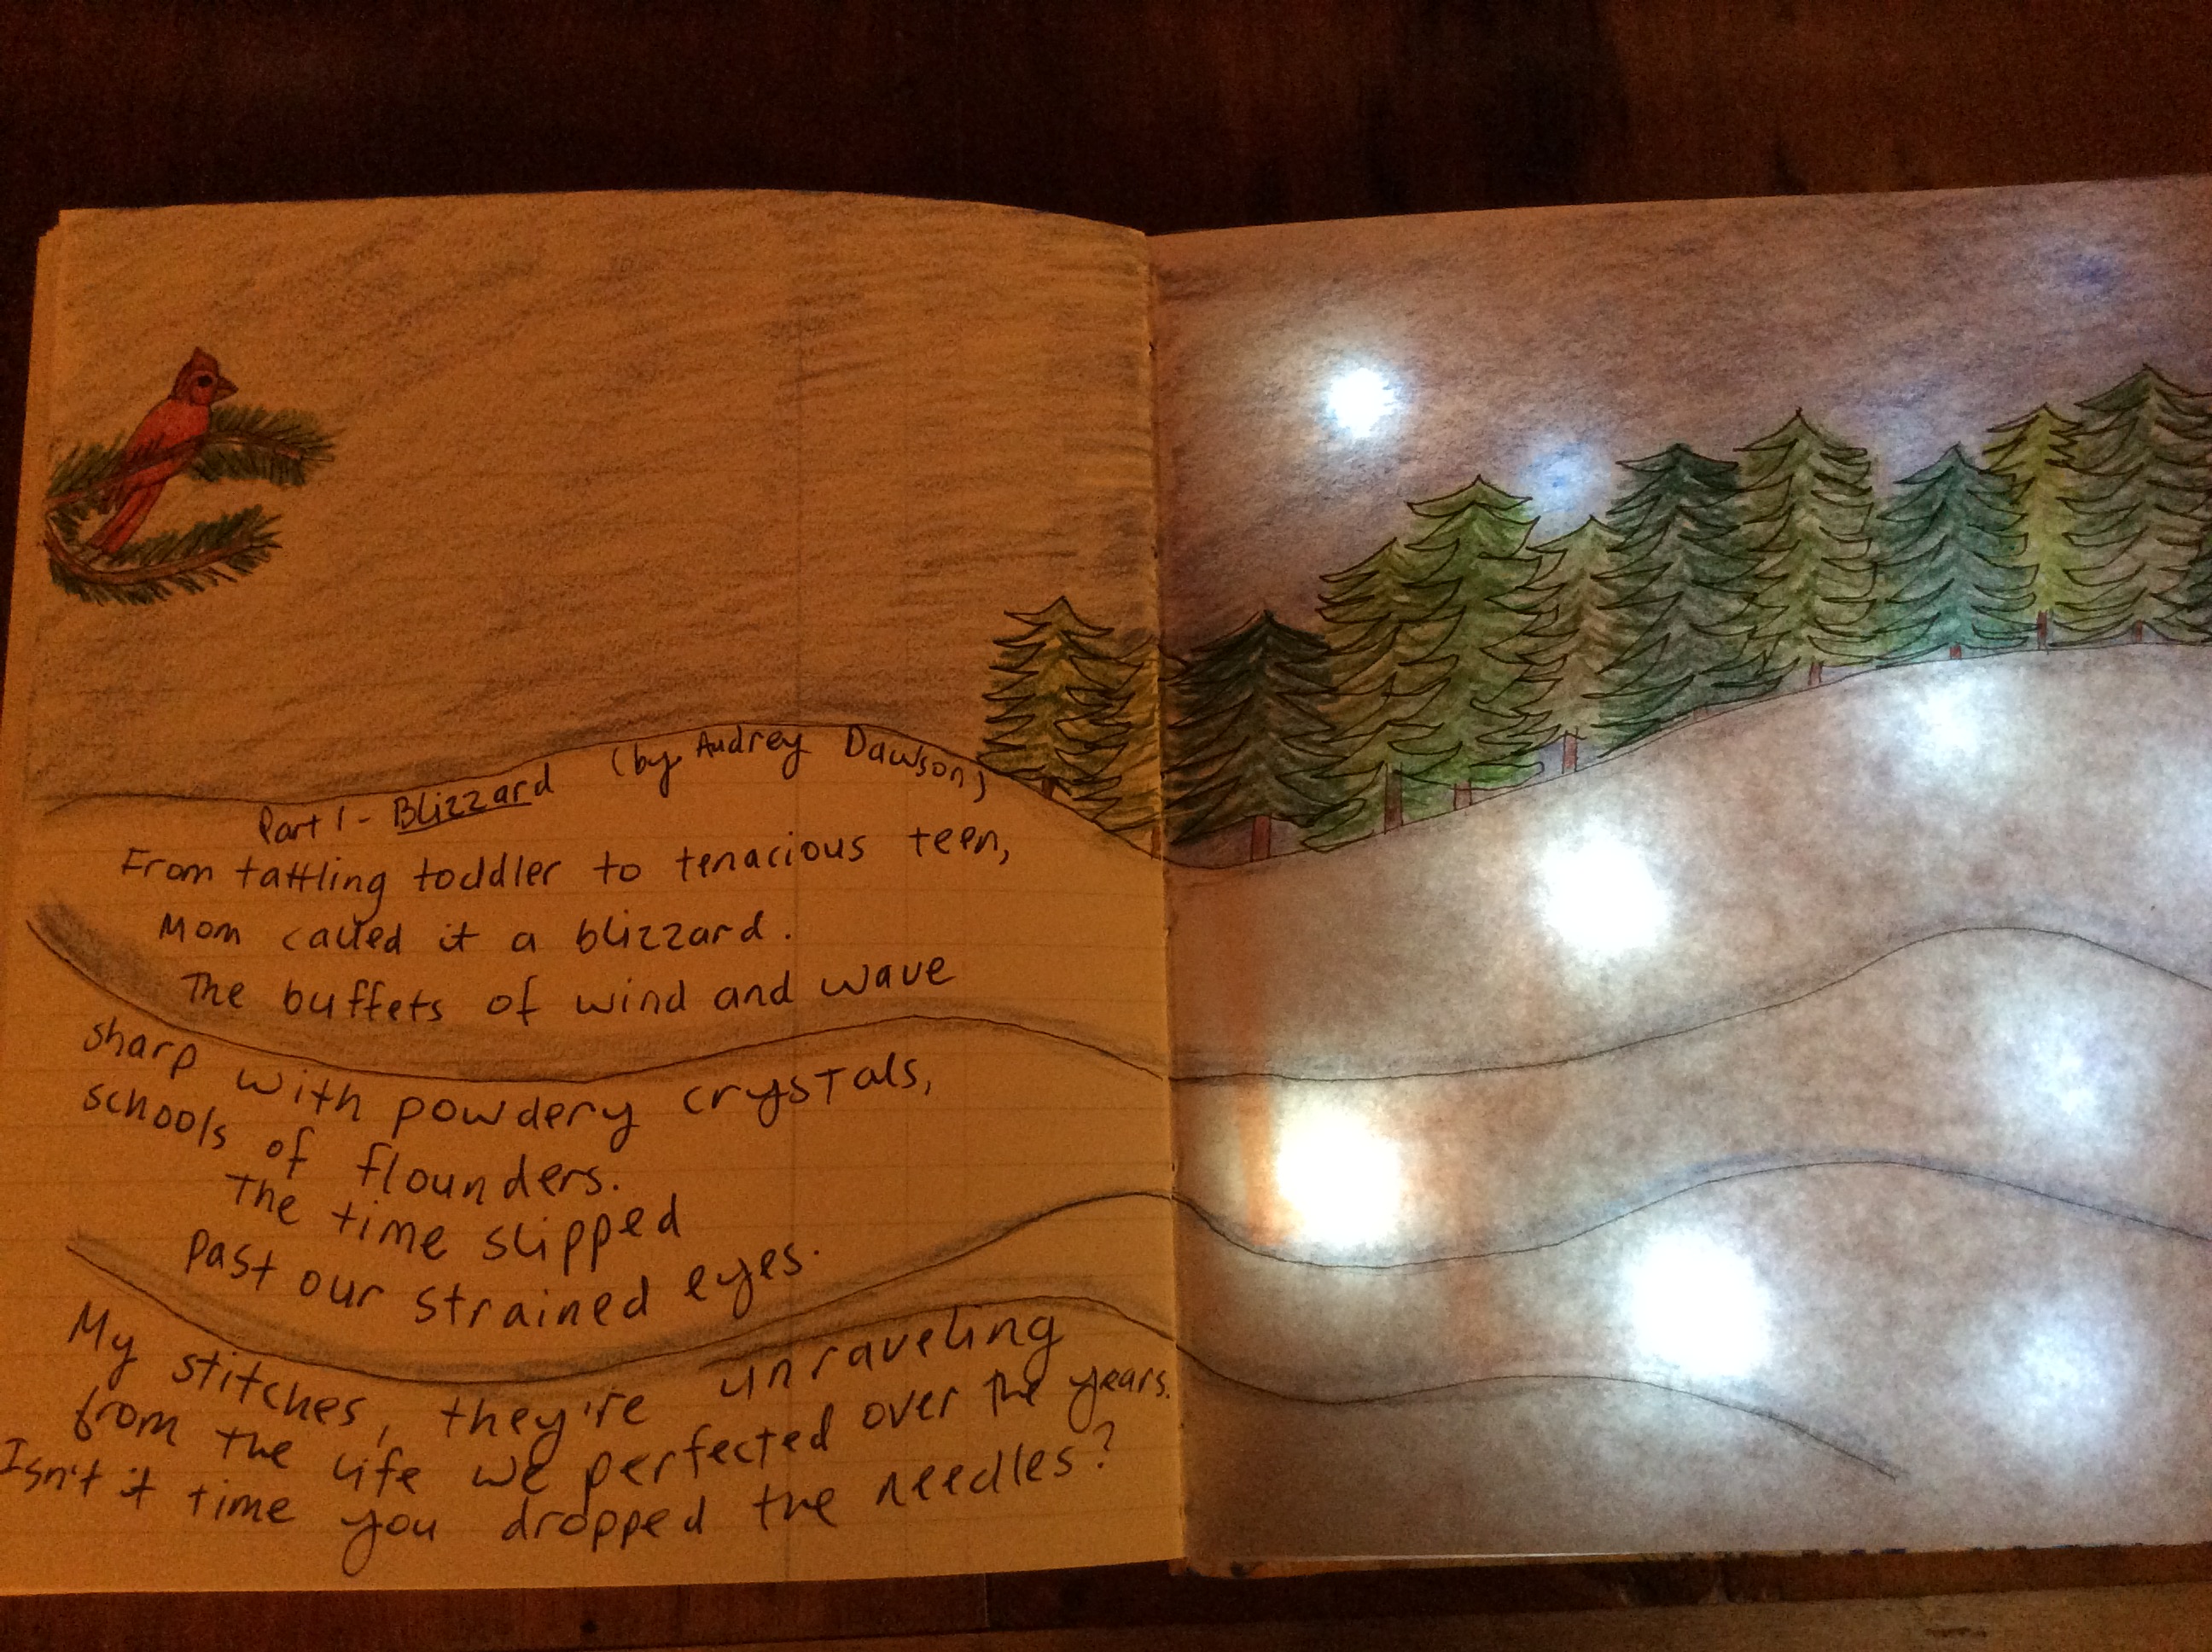 Part 1 - Blizzard (by Audrey Dawson)
From tattling toddler to tenacious teen,
Mom called it a blizzard.
The buffets of wind and wave
sharp with powdery crystals,
schools of flounders.
The time slipped
past our strained eyes.
My stitches, they're unraveling
from the life we perfected over the years.
Isn't it time you dropped the needles?